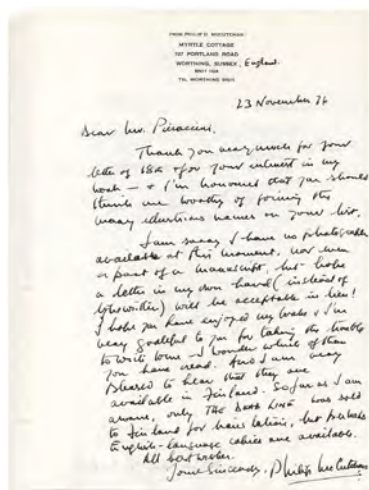 FROM PHILIP D. McCUTCHAN
MYRTLE COTTAGE
107 PORTLAND ROAD
WORTHING, SUSSEX, England.
TEL WORTHING
23 November 76
Dear Mr.
Thank you very much for your
letter of 18th & for your interest in my
work – & I'm honoured that you should
think me worthy of joining the
many illustrious names on your list.
I am sorry I have no photographs
available at this moment, nor even
a part of a manuscript, but hope
a letter in my own hand (instead of
typewritten) will be acceptable in lieu!
I hope you have enjoyed my books & I'm
very grateful to you for taking the trouble
to write to me – I wonder which of them
you have read. And I am very
pleased to hear that they are
available in Finland. So far as I am
aware, only THE DARK LINE was sold
to Finland for translation, but perhaps
English-language copies are available.
All best wishes.
Yours sincerely, Philip McCutchan